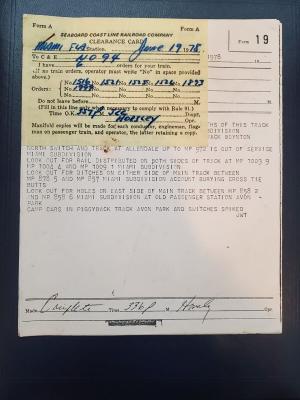 Form A
Form A
SEABOARD COAST LINE RAILROAD COMPANY
CLEARANCE CARD
Miami, FLA Station. June 19 1978
To C & E NO 94
I have 6 orders for your train.
(If no train orders, operator must write "No" in space provided above.)
No. 1516 No. 1521 No. 1525 No. 1526 No. 1833
Orders:
No. No. No. No. No.
Do not leave before M.
(Fill in this line only when necessary to comply with Rule 91.)
Time O.K.
Opr.
Manifold copies will be made for each conductor, engineman, flagman on passenger train, and operator, the latter retaining a copy.
Form 19
1978
THS OF THIS TRACK
BDIVISION
ACK BOYNTON
NORTH SWITCH AND TRACK AT ALLENDALE UP TO MP 972 IS OUT OF SERVICE
MIAMI SUBDIVISION
LOOK OUT FOR RAIL DISTRIBUTED ON BOTH SIDES OF TRACK AT MP 1003 9
MP 1004 4 AND MP 1009 1 MIAMI SUBDIVISION
LOOK OUT FOR DITCHES ON EITHER SIDE OF MAIN TRACK BETWEEN
MP 878 5 AND MP 857 MIAMI SUBDIVISION ACCOUNT BURYING CROSS TIE
BUTTS
LOOK OUT FOR HOLES ON EAST SIDE OF MAIN TRACK BETWEEN MP 858 2
AND MP 858 6 MIAMI SUBDIVISION AT OLD PASSENGER STATION AVON
PARK
CAMP CARS IN PIGGYBACK TRACK AVON PARK AND SWITCHES SPIKED
JWT
Made Complete Time 336 P M Opr.